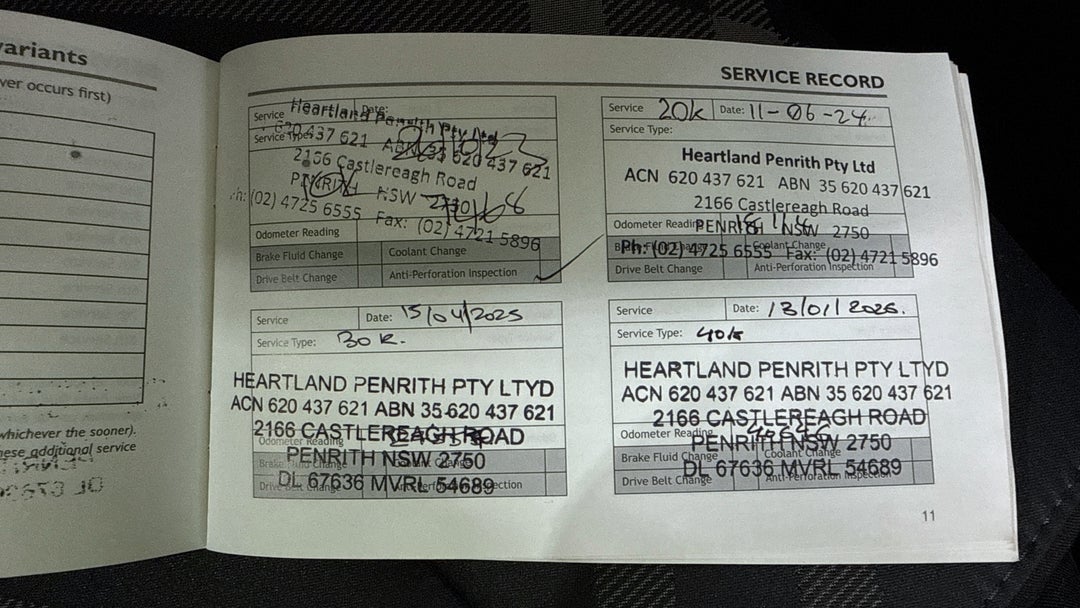 variants
ver occurs first)
whichever the sooner).
nese additional service
SERVICE RECORD
Service Date:
Service Type:
Heartland Penrith Pty Ltd
620 437 621 ABN 35 620 437 621
2166 Castlereagh Road
PENRITH NSW 2750
Ph: (02) 4725 6555 Fax: (02) 4721 5896
Odometer Reading
Brake Fluid Change Coolant Change
Drive Belt Change Anti-Perforation Inspection
Service 20k Date: 11-06-24
Service Type:
Heartland Penrith Pty Ltd
ACN 620 437 621 ABN 35 620 437 621
2166 Castlereagh Road
Odometer Reading
PENRITH NSW 2750
Brake Fluid Change Coolant Change
Ph: (02) 4725 6555 Fax: (02) 4721 5896
Drive Belt Change Anti-Perforation Inspection
Service Date: 15/04/2025
Service Type: 30K.
HEARTLAND PENRITH PTY LTYD
ACN 620 437 621 ABN 35 620 437 621
2166 CASTLEREAGH ROAD
Odometer Reading
PENRITH NSW 2750
Brake Fluid Change Coolant Change
DL 67636 MVRL 54689
Drive Belt Change Anti-Perforation Inspection
Service Date: 13/01/2026.
Service Type: 40k
HEARTLAND PENRITH PTY LTYD
ACN 620 437 621 ABN 35 620 437 621
2166 CASTLEREAGH ROAD
Odometer Reading
PENRITH NSW 2750
Brake Fluid Change Coolant Change
DL 67636 MVRL 54689
Drive Belt Change Anti-Perforation Inspection
11